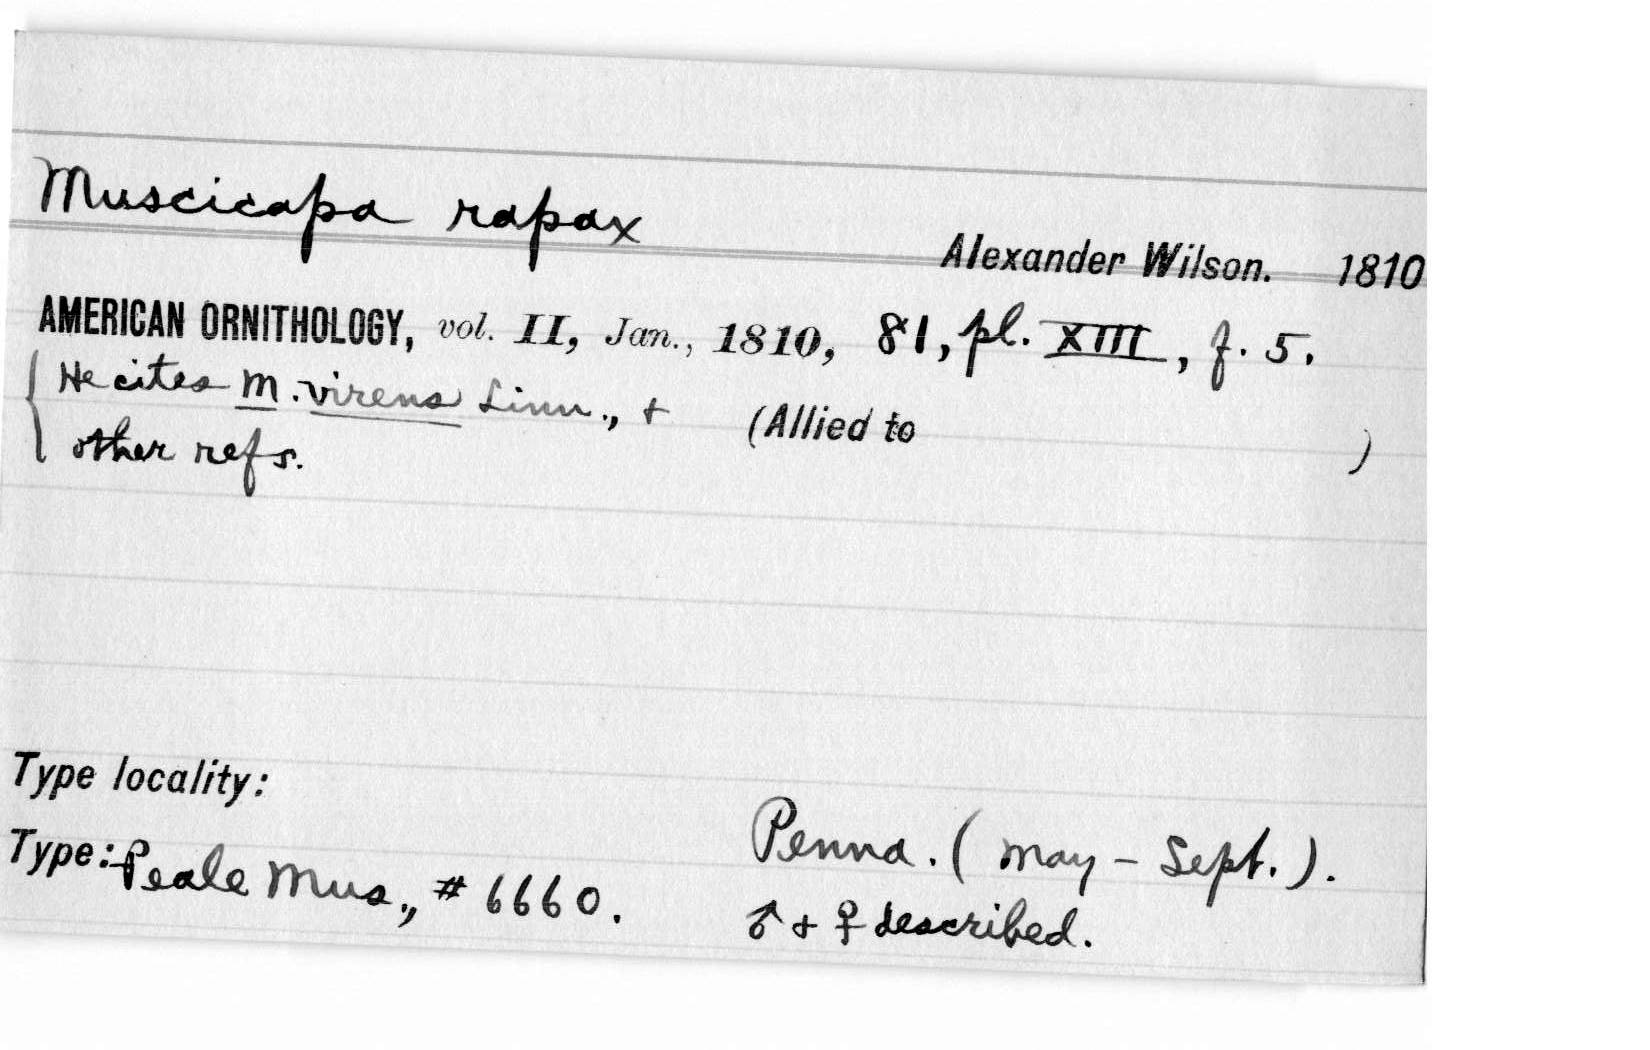 Muscicapa rapax
Alexander Wilson. 1810
AMERICAN ORNITHOLOGY, vol. II, Jan., 1810, 81, pl. XIII, f. 5.
He cites M. virens Linn., + (Allied to )
other refs.
Type locality:
Penna. (May - Sept.).
Type: Peale Mus., # 6660.
♂ + ♀ described.